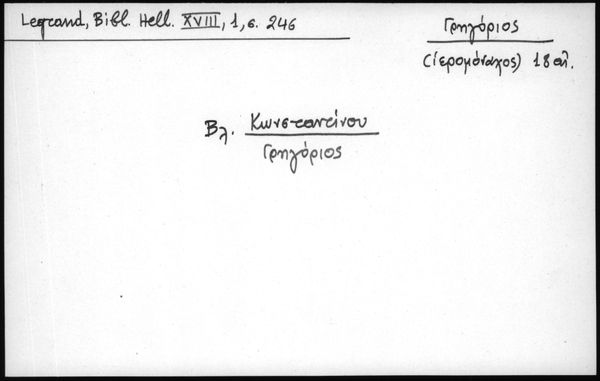 Legrand, Bibl. Hell. XVIII, 1, σ. 246
Γρηγόριος
(ἱερομόναχος) 18 αἰ.
Βλ. Κωνσταντίνου
Γρηγόριος